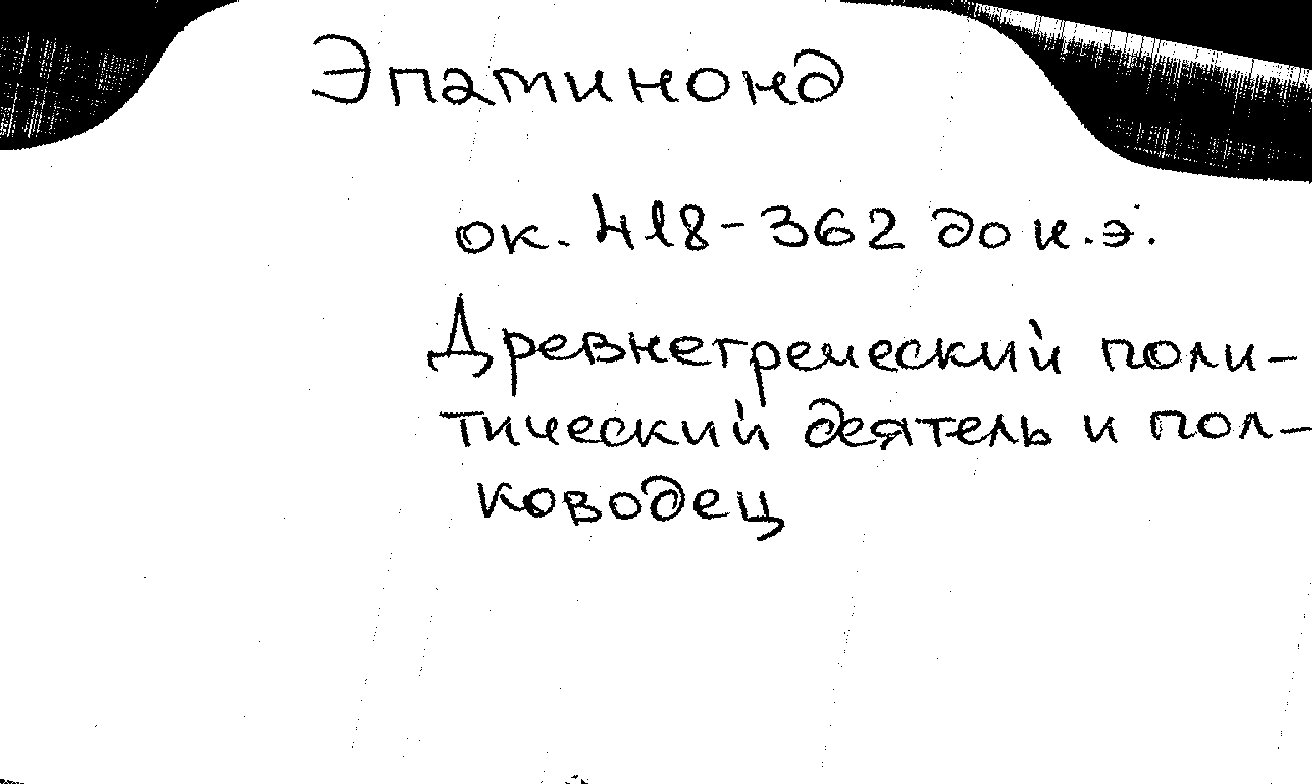 Эпаминонд
ок. 418-362 до н.э.
Древнегреческий поли-
тический деятель и пол-
ководец